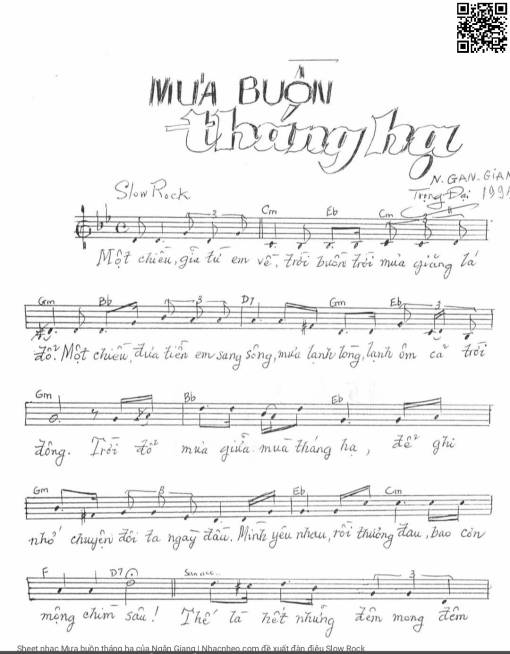 MƯA BUỒN
tháng hạ
N. GAN. GIAN
Trọng Đại 199
Slow Rock
3 Cm Eb Cm 3
Một chiều, giã từ em về. trời buồn trời mưa giăng lá
Gm Bb 3 D7 Gm Eb 3
đổ. Một chiều, đưa tiễn em sang sông, mưa lạnh lòng, lạnh ôm cả trời
Gm Bb Eb
đông. Trời đổ mưa giữa mùa tháng hạ, để ghi
Gm 3 Eb Cm
nhớ chuyện đôi ta ngày đầu. Mình yêu nhau, rồi thương đau, bao cơn
F D7 3
mộng chìm sâu! Thế là hết những đêm mong đêm
Sheet nhạc Mưa buồn tháng hạ của Ngân Giang | Nhacnheo.com đề xuất đàn điệu Slow Rock